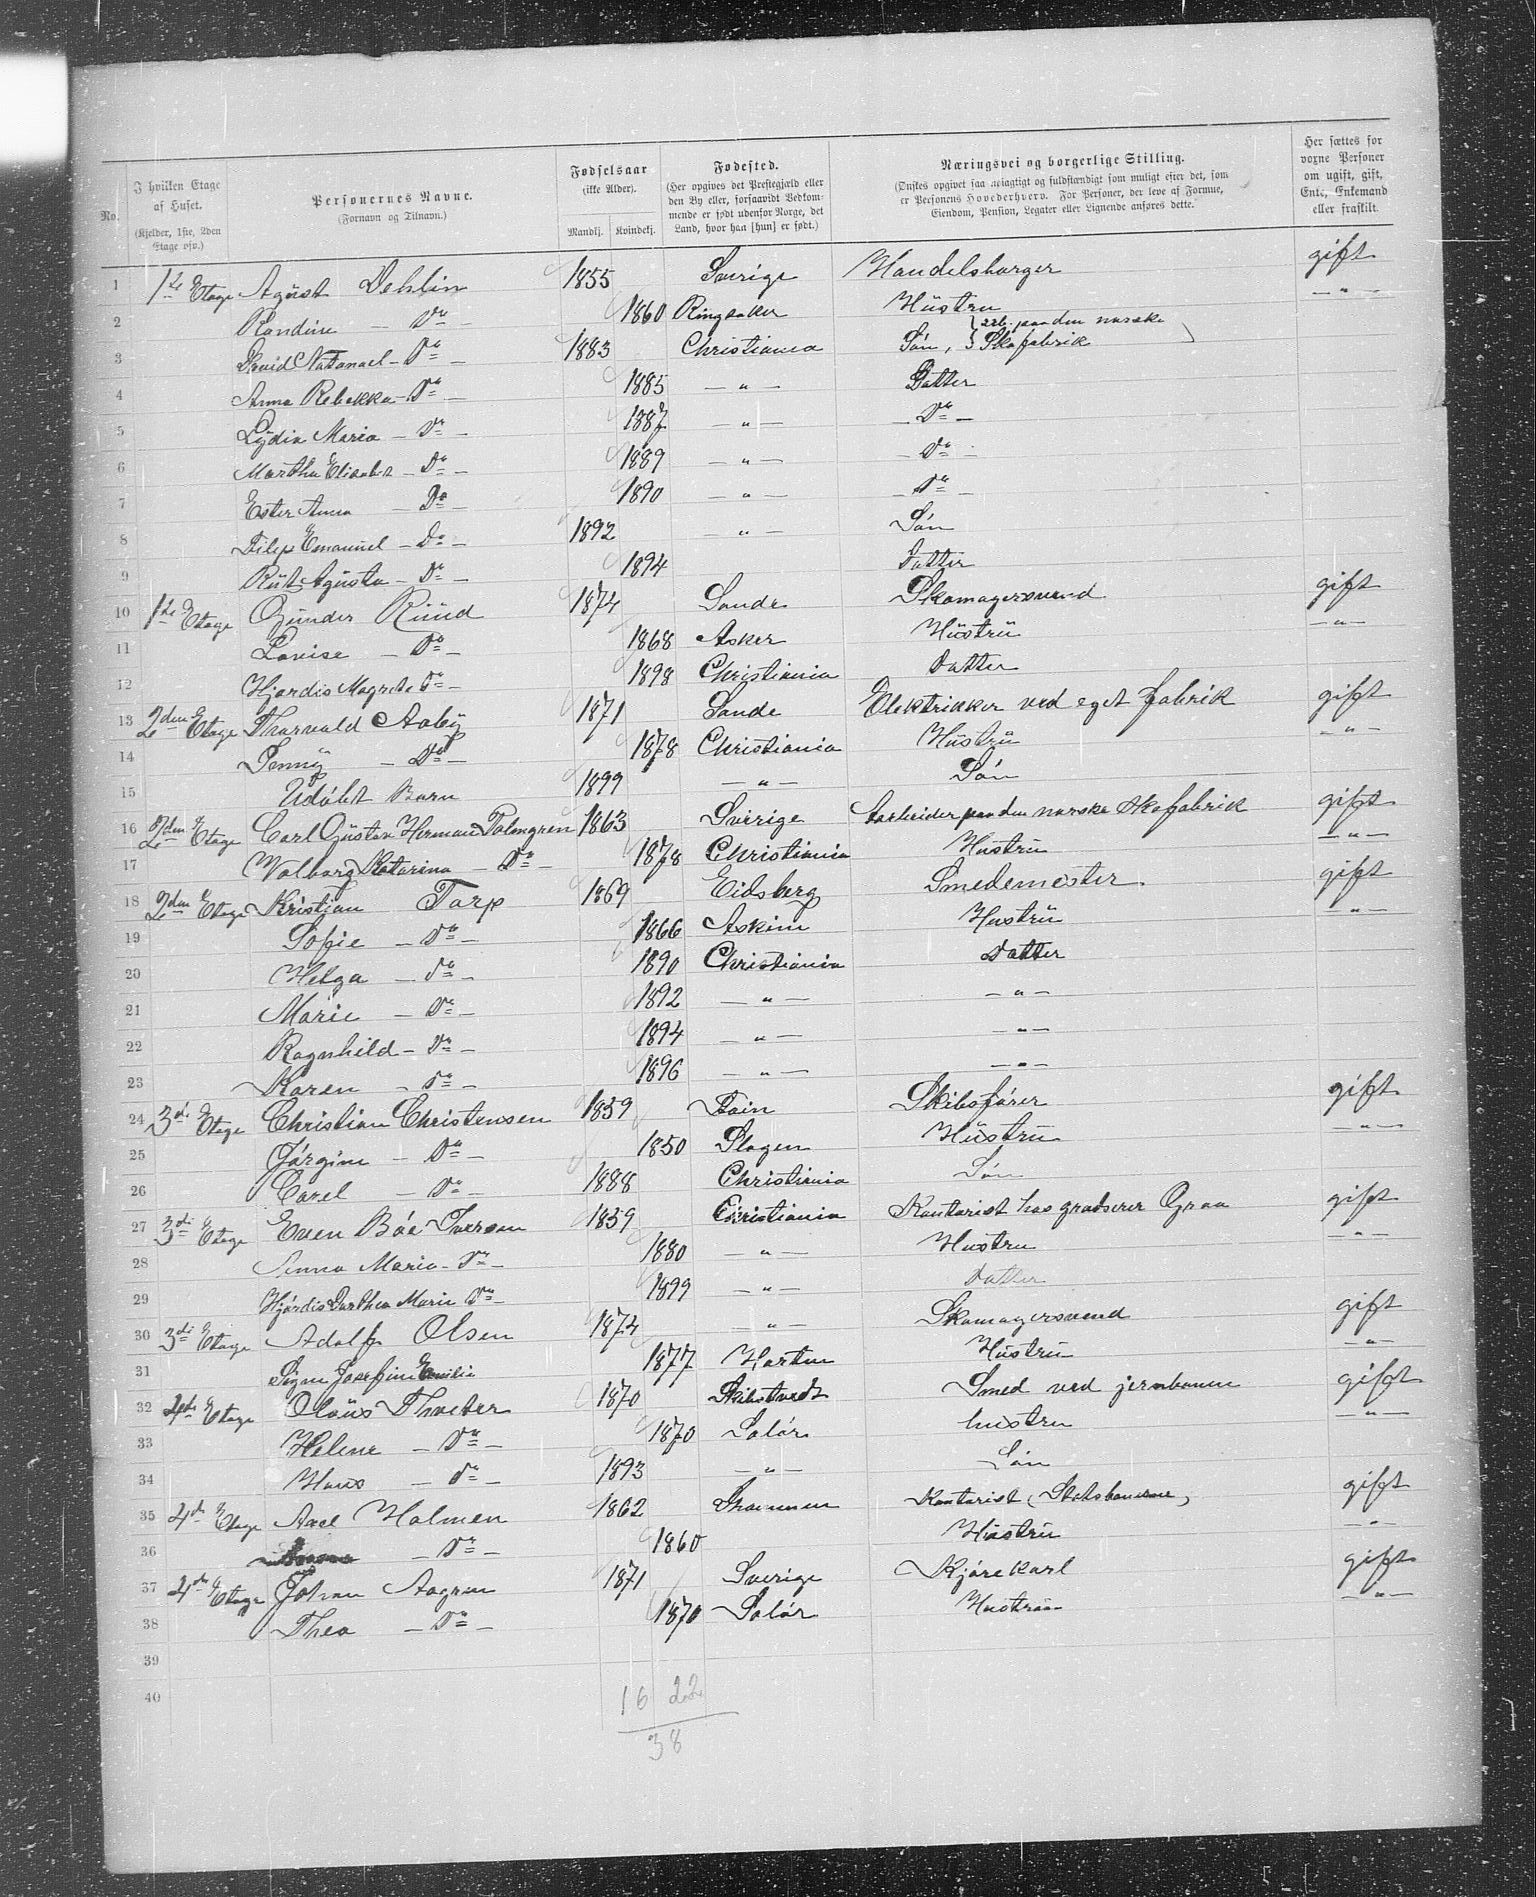 No. | I hvilken Etage af Huset. (Kjelder, 1ste, 2den Etage osv.) | Personernes Navne. (Fornavn og Tilnavn.) | Fødselsaar (ikke Alder). Mandkj. Kvindekj. | Fødested. (Her opgives det Prestegjæld eller den By eller, forsaavidt Vedkommende er født udenfor Norge, det Land, hvor han [hun] er født.) | Næringsvei og borgerlige Stilling. (Ønskes opgivet saa nøiagtigt og fuldstændigt som muligt efter det, som er Personens Hovederhverv. For Personer, der leve af Formue, Eiendom, Pension, Legater eller Lignende anføres dette.) | Her sættes for voxne Personer om ugift, gift, Enke, Enkemand eller fraskilt.
1 1ste Etage Agust Dehlin 1855 Sverige Handelsborger gift
2 Randine — Do — 1860 Ringsaker Hustru — " —
3 David Natanael — Do — 1883 Christiania Søn, { arb. paa den norske Skofabrik
4 Anna Rebekka — Do — 1885 — " — Datter
5 Lydia Maria — Do — 1887 — " — — Do —
6 Martha Elisabet — Do — 1889 — " — — Do —
7 Ester Anna — Do — 1890 — " — — Do —
8 Filip Emanuel — Do — 1892 — " — Søn
9 Rut Agusta — Do — 1894 Datter
10 1ste Etage Gunder Ruud 1874 Sande Skomagersvend gift
11 Lovise — Do — 1868 Asker Hustru — " —
12 Hjørdis Magrete Do — 1898 Christiania Datter
13 2den Etage Thorvald Aaby 1871 Sande Elektrikker ved eget fabrik gift
14 Jenny — Do — 1878 Christiania Hustru — " —
15 Udøbt Barn 1899 — " — Søn
16 2den Etage Carl Gustav Herman Palmgren 1863 Sverige Aarbeider paa den norske skofabrik gift
17 Valborg Katarina — Do — 1878 Christiania Hustru — " —
18 2den Etage Kristian Torp 1869 Eidsberg Smedemester. gift
19 Sofie — Do — 1866 Askim Hustru — " —
20 Helga — Do — 1890 Christiania Datter
21 Marie — Do — 1892 — " — — " —
22 Ragnhild — Do — 1894 — " — — " —
23 Karen — Do — 1896 — " — — " —
24 3die Etage Christian Christensen 1859 Skibsfører gift
25 Jørgine — Do — 1850 Slagen Hustru — " —
26 Carel — Do — 1888 Christiania Søn
27 3die Etage Even Bøe Iversen 1859 Christiania Kontorist hos grosserer Graa gift
28 Anna Maria — Do — 1880 — " — Hustru — " —
29 Hjørdis Dorthea Marie Do — 1899 — " — Datter
30 3die Etage Adolf Olsen 1874 — " — Skomagersvend gift
31 Signe Josefine Emilie 1877 Horten Hustru — " —
32 4de Etage Olaus Thveter 1870 Skibtvedt Smed ved jernbanen gift
33 Helene — Do — 1870 Solør hustru — " —
34 Hans — Do — 1893 — " — Søn
35 4de Etage Axel Holmen 1862 Drammen Kontorist (Statsbanerne) gift
36 — Do — 1860 Hustru — " —
37 4de Etage Johan Aagren 1871 Sverige Kjørekarl gift
38 Thea — Do — 1870 Solør Hustru — " —
39
40
16 22
38